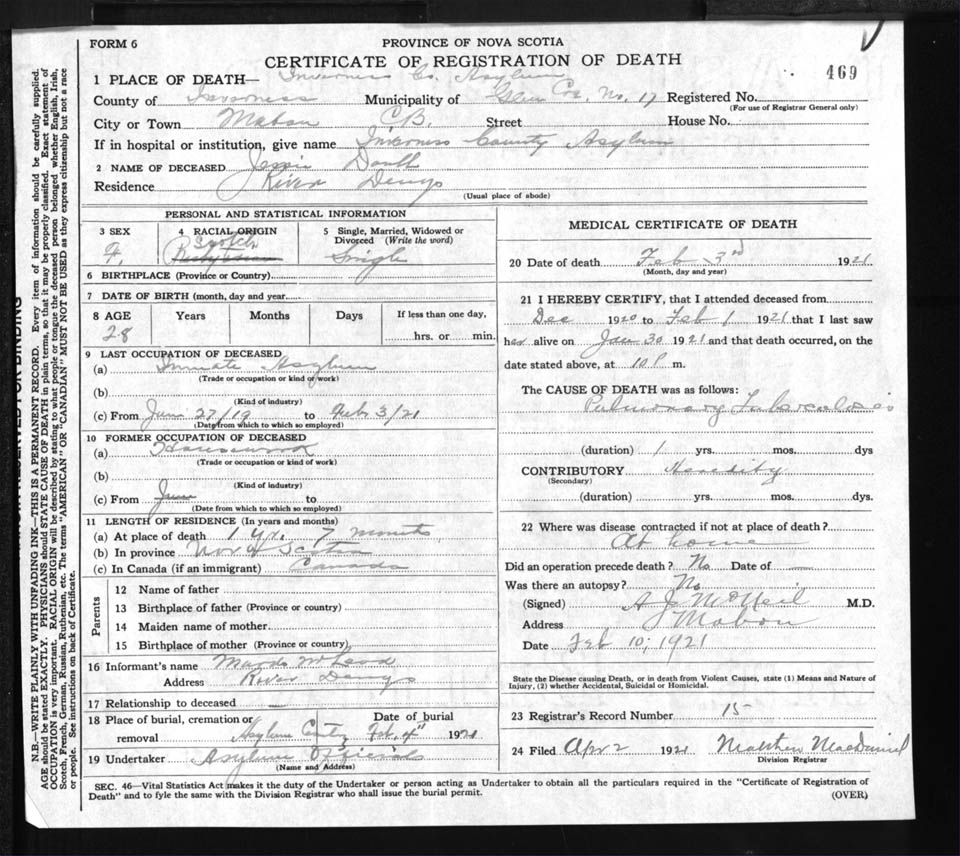 FORM 6
PROVINCE OF NOVA SCOTIA
CERTIFICATE OF REGISTRATION OF DEATH
469
1 PLACE OF DEATH— Inverness Co. Asylum
County of Inverness Municipality of Glen Co. No. 17 Registered No.
(For use of Registrar General only)
City or Town Mabou C.B. Street House No.
If in hospital or institution, give name Inverness County Asylum
2 NAME OF DECEASED Jessie
Residence River Denys
(Usual place of abode)
PERSONAL AND STATISTICAL INFORMATION
3 SEX 4 RACIAL ORIGIN 5 Single, Married, Widowed or Divorced (Write the word)
F. Scotch Single
6 BIRTHPLACE (Province or Country)
7 DATE OF BIRTH (month, day and year)
8 AGE Years Months Days If less than one day,
28 hrs. or min.
9 LAST OCCUPATION OF DECEASED
(a) Inmate Asylum
(Trade or occupation or kind of work)
(b)
(Kind of industry)
(c) From June 27/19 to Feb 3/21
(Date from which to which so employed)
10 FORMER OCCUPATION OF DECEASED
(a) Housework
(Trade or occupation or kind of work)
(b)
(Kind of industry)
(c) From June to
(Date from which to which so employed)
11 LENGTH OF RESIDENCE (In years and months)
(a) At place of death 1 yr. 7 months
(b) In province Nova Scotia
(c) In Canada (if an immigrant) Canada
Parents
12 Name of father
13 Birthplace of father (Province or country)
14 Maiden name of mother
15 Birthplace of mother (Province or country)
16 Informant's name McLeod
Address River Denys
17 Relationship to deceased
18 Place of burial, cremation or Date of burial
removal Asylum Feb. 4" 1921
19 Undertaker Asylum Officials
(Name and Address)
MEDICAL CERTIFICATE OF DEATH
20 Date of death Feb 3rd 1921
(Month, day and year)
21 I HEREBY CERTIFY, that I attended deceased from
Dec 1920 to Feb 1 1921 that I last saw
her alive on Jan 30 1921 and that death occurred, on the
date stated above, at 10 P m.
The CAUSE OF DEATH was as follows:
Pulmonary Tuberculosis
(duration) 1 yrs. mos. dys
CONTRIBUTORY Heredity
(Secondary)
(duration) yrs. mos. dys.
22 Where was disease contracted if not at place of death?
At home
Did an operation precede death? No Date of
Was there an autopsy? No
(Signed) A J McNeil M.D.
Address Mabou
Date Feb 10, 1921
State the Disease causing Death, or in death from Violent Causes, state (1) Means and Nature of
Injury, (2) whether Accidental, Suicidal or Homicidal.
23 Registrar's Record Number 15
24 Filed Apr 2 1921 Matthew MacDaniel
Division Registrar
SEC. 46—Vital Statistics Act makes it the duty of the Undertaker or person acting as Undertaker to obtain all the particulars required in the "Certificate of Registration of
Death" and to fyle the same with the Division Registrar who shall issue the burial permit. (OVER)
RESERVED FOR BINDING
N.B.—WRITE PLAINLY WITH UNFADING INK—THIS IS A PERMANENT RECORD. Every item of information should be carefully supplied.
AGE should be stated EXACTLY. PHYSICIANS should STATE CAUSE OF DEATH in plain terms, so that it may be properly classified. Exact statement of
OCCUPATION is very important. RACIAL ORIGIN will be described by stating to what people or tongue the deceased person belonged whether English, Irish,
Scotch, French, German, Russian, Ruthenian, etc. The terms "AMERICAN" OR "CANADIAN" MUST NOT BE USED as they express citizenship but not a race
or people. See instructions on back of Certificate.